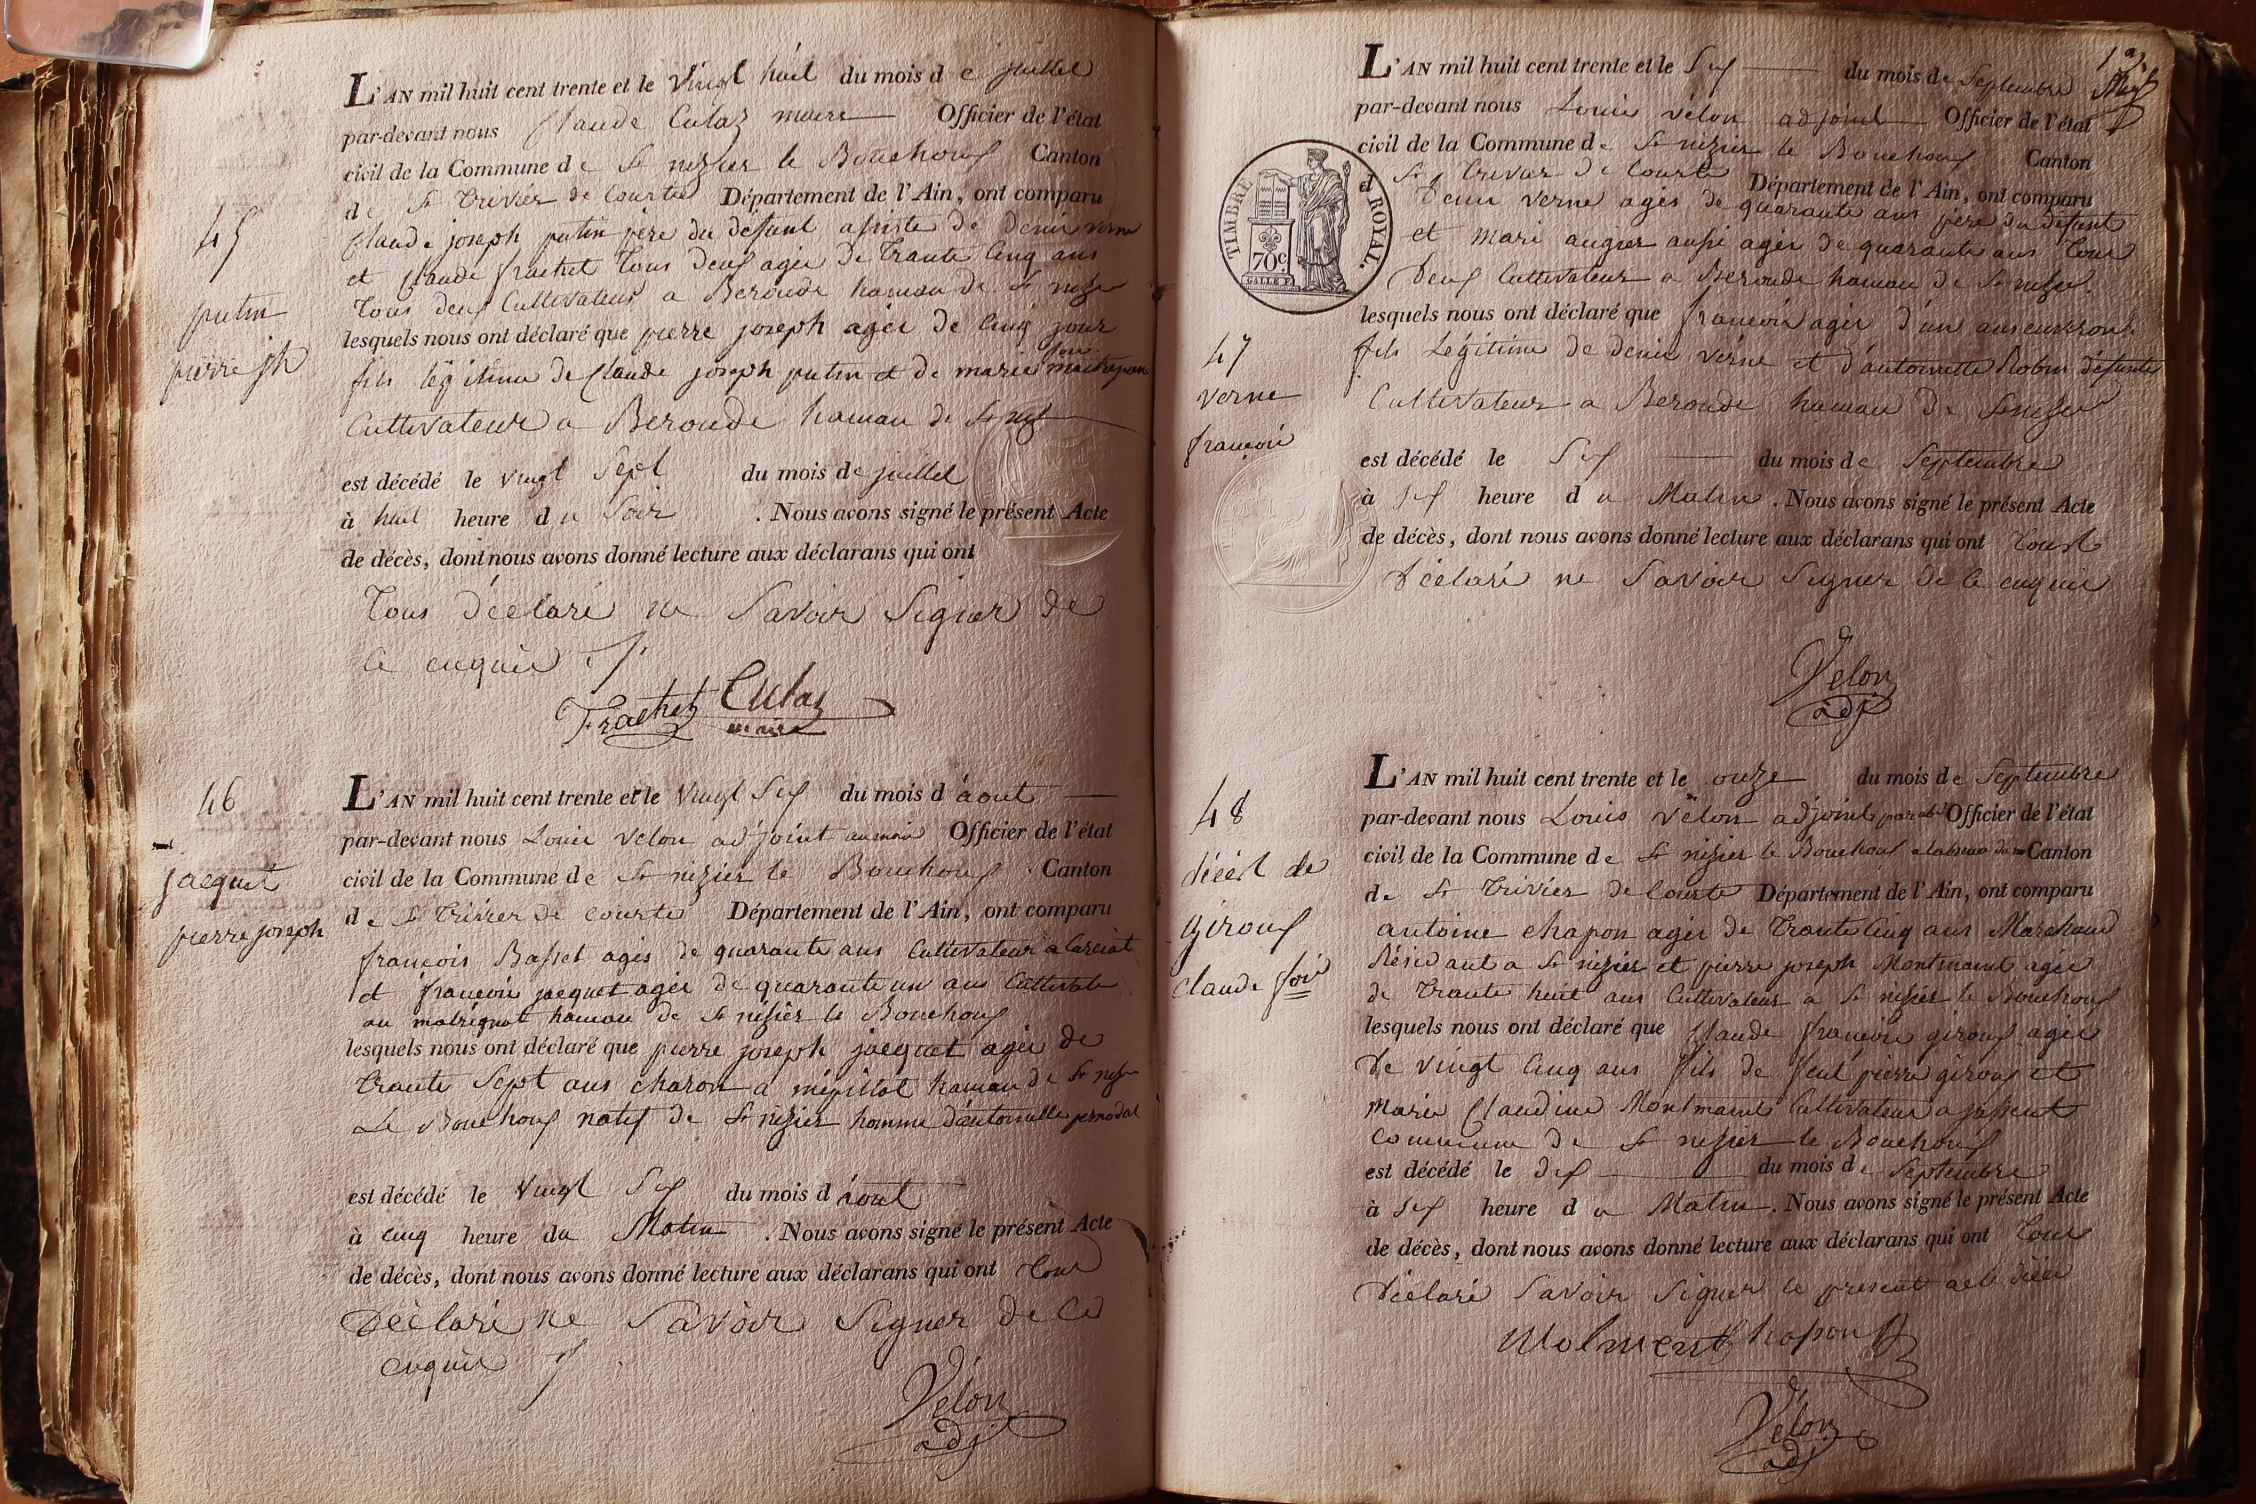 L'AN mil huit cent trente et le vingt huit du mois de juillet
par-devant nous Claude Culaz maire Officier de l'état
civil de la Commune de St nizier le Bouchoux Canton
de St Trivier de Courtes Département de l'Ain, ont comparu
45
Claude joseph putin père du defunt de denis verne
et Claude frachet tous deux agés de Trante Cinq ans
Tous deux Cultivateurs a Beroude hamau de St nizier
putin
pierre jh
lesquels nous ont déclaré que pierre joseph agée de Cinq jour
fils légitime de Claude joseph putin et de marie
Cultivateur a Beroude hamau de St
est décédé le vingt Sept du mois de juillet
à huit heure du Soir . Nous avons signé le présent Acte
de décès, dont nous avons donné lecture aux déclarans qui ont
Tous Déclaré ne Savoir Signer de
ce enquis
Frachet Culaz
maire
46
jacquet
pierre joseph
L'AN mil huit cent trente et le vingt Six du mois d'aout
par-devant nous Louis velon adjoint au maire Officier de l'état
civil de la Commune de St nizier le Bouchoux Canton
de St Trivier de Courtes Département de l'Ain, ont comparu
francois Basset agés de quarante ans Cultivateur a Curciat
et francois jacquet agée de quarante un ans
au hamau de St nizier le Bouchoux
lesquels nous ont déclaré que pierre joseph jacquet agée de
Trante Sept ans charon a hamau de St
Le Bouchoux natif de St nizier homme d'antoinette pernodat
est décédé le vingt Six du mois d'aout
à cinq heure du Matin . Nous avons signé le présent Acte
de décès, dont nous avons donné lecture aux déclarans qui ont Tous
Déclaré ne Savoir Signer de Ce
enquis
Velon
adj
L'AN mil huit cent trente et le Six du mois de Septembre
par-devant nous Louis velon adjoint Officier de l'état
civil de la Commune de St nizier le Bouchoux Canton
St Trivier de Courtes Département de l'Ain, ont comparu
Denis verne agés de quarante ans père du defunt
et Mari augier aussi agée de quarante ans Tous
Deux Cultivateurs a Beroude hamau de St nizier
TIMBRE ROYAL.
70c.
47
verne
francois
lesquels nous ont déclaré que francois agée d'un ans environ
fils Légitime de denis verne et d'antoinette Robin défunte
Cultivateur a Beroude hamau de St nizier
est décédé le Six du mois de Septembre
à Six heure du Matin . Nous avons signé le présent Acte
de décès, dont nous avons donné lecture aux déclarans qui ont Tous
Déclaré ne Savoir Signer de Ce enquis
Velon
adj
48
décèt de
Giroux
Claude foi
L'AN mil huit cent trente et le onze du mois de Septembre
par-devant nous Louis velon adjoint Officier de l'état
civil de la Commune de St nizier le Bouchoux Canton
de St Trivier de Courtes Département de l'Ain, ont comparu
antoine chapon agée de Trante Cinq ans Marchand
Résidant a St nizier et pierre joseph Montmaint agée
de Trante huit ans Cultivateur a St nizier le Bouchoux
lesquels nous ont déclaré que Claude francois giroux agée
De vingt Cinq ans fils de feut pierre giroux et
Marie Claudine Montmaint Cultivateur a
Commune de St nizier le Bouchoux
est décédé le dix du mois de Septembre
à Six heure du Matin . Nous avons signé le présent Acte
de décès, dont nous avons donné lecture aux déclarans qui ont Tous
Déclaré Savoir Signer le present acte
Chapon
Velon
adj